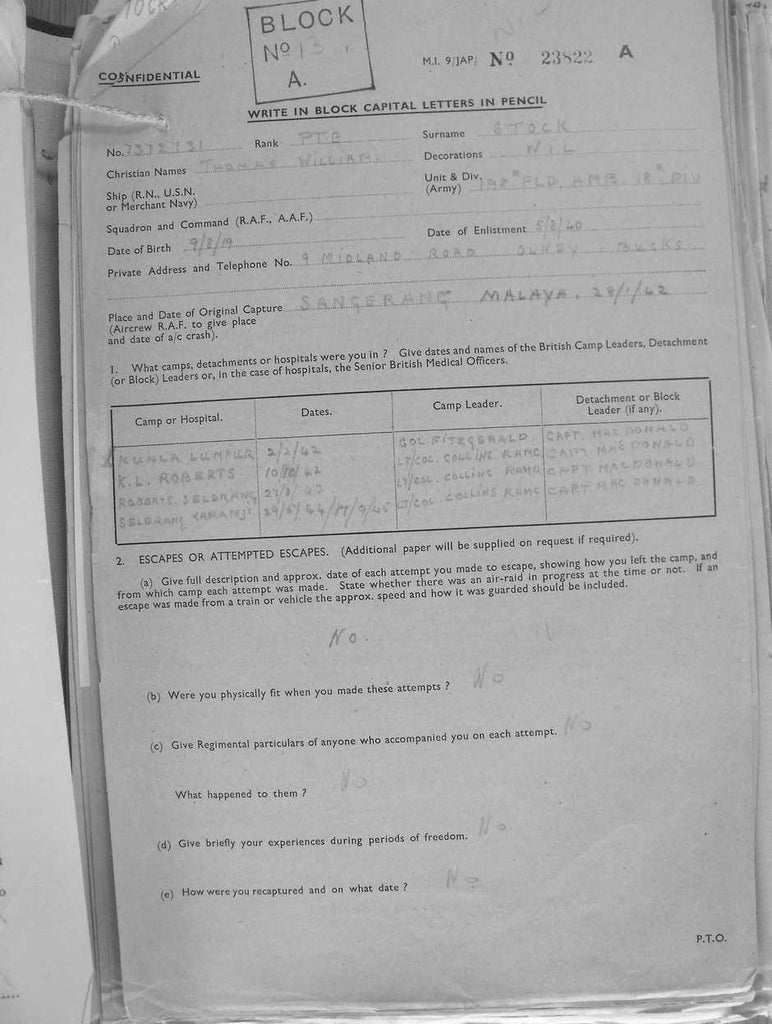 BLOCK
Nº 13
A.
CONFIDENTIAL
M.I. 9/JAP/ Nº 23822 A
WRITE IN BLOCK CAPITAL LETTERS IN PENCIL
No. 7372731 Rank PTE Surname STOCK
Christian Names THOMAS WILLIAM Decorations NIL
Ship (R.N., U.S.N. or Merchant Navy)
Unit & Div. (Army) 198th FLD. AMB. 18th DIV
Squadron and Command (R.A.F., A.A.F.)
Date of Birth 9/8/19 Date of Enlistment 5/8/40
Private Address and Telephone No. 9 MIDLAND ROAD OLNEY BUCKS
Place and Date of Original Capture SANGERANG MALAYA. 28/1/42
(Aircrew R.A.F. to give place
and date of a/c crash).
1. What camps, detachments or hospitals were you in ? Give dates and names of the British Camp Leaders, Detachment
(or Block) Leaders or, in the case of hospitals, the Senior British Medical Officers.
Camp or Hospital. Dates. Camp Leader. Detachment or Block Leader (if any).
KUALA LUMPUR 2/2/42 COL. FITZGERALD. CAPT. MACDONALD
K.L. ROBERTS 10/10/42 LT/COL. COLLINS RAMC CAPT MACDONALD
ROBERTS. SELERANG 27/8/43 LT/COL. COLLINS RAMC CAPT MACDONALD
SELERANG KARANJI 29/5/44 LT/COL. COLLINS RAMC CAPT MAC DONALD.
2. ESCAPES OR ATTEMPTED ESCAPES. (Additional paper will be supplied on request if required).
(a) Give full description and approx. date of each attempt you made to escape, showing how you left the camp, and
from which camp each attempt was made. State whether there was an air-raid in progress at the time or not. If an
escape was made from a train or vehicle the approx. speed and how it was guarded should be included.
No.
(b) Were you physically fit when you made these attempts ? No
(c) Give Regimental particulars of anyone who accompanied you on each attempt. No
What happened to them ? No
(d) Give briefly your experiences during periods of freedom. No
(e) How were you recaptured and on what date ? No
P.T.O.